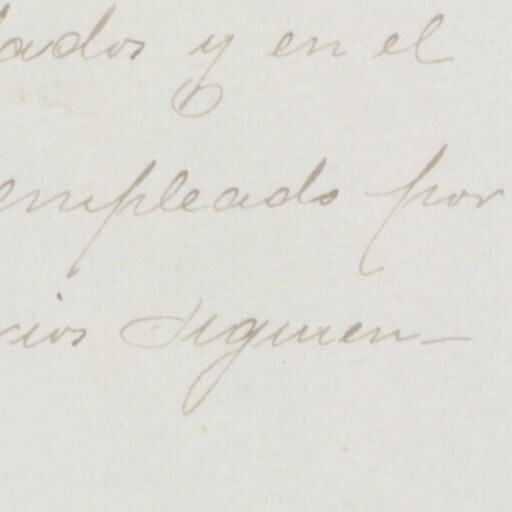 lados y en el
empleado por
rios siguien-